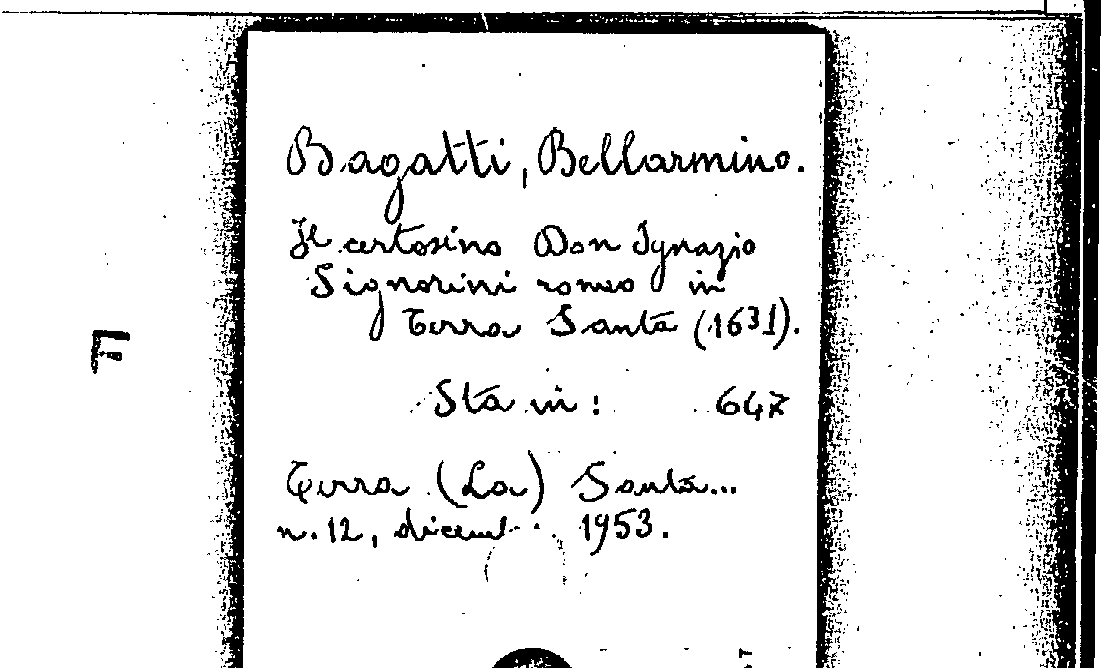 Bagatti, Bellarmino.
Il certosino Don Ignazio
Signorini romeo in
Terra Santa (1631).
Sta in: 647
Terra (La) Santa...
n. 12, dicem 1953.
F